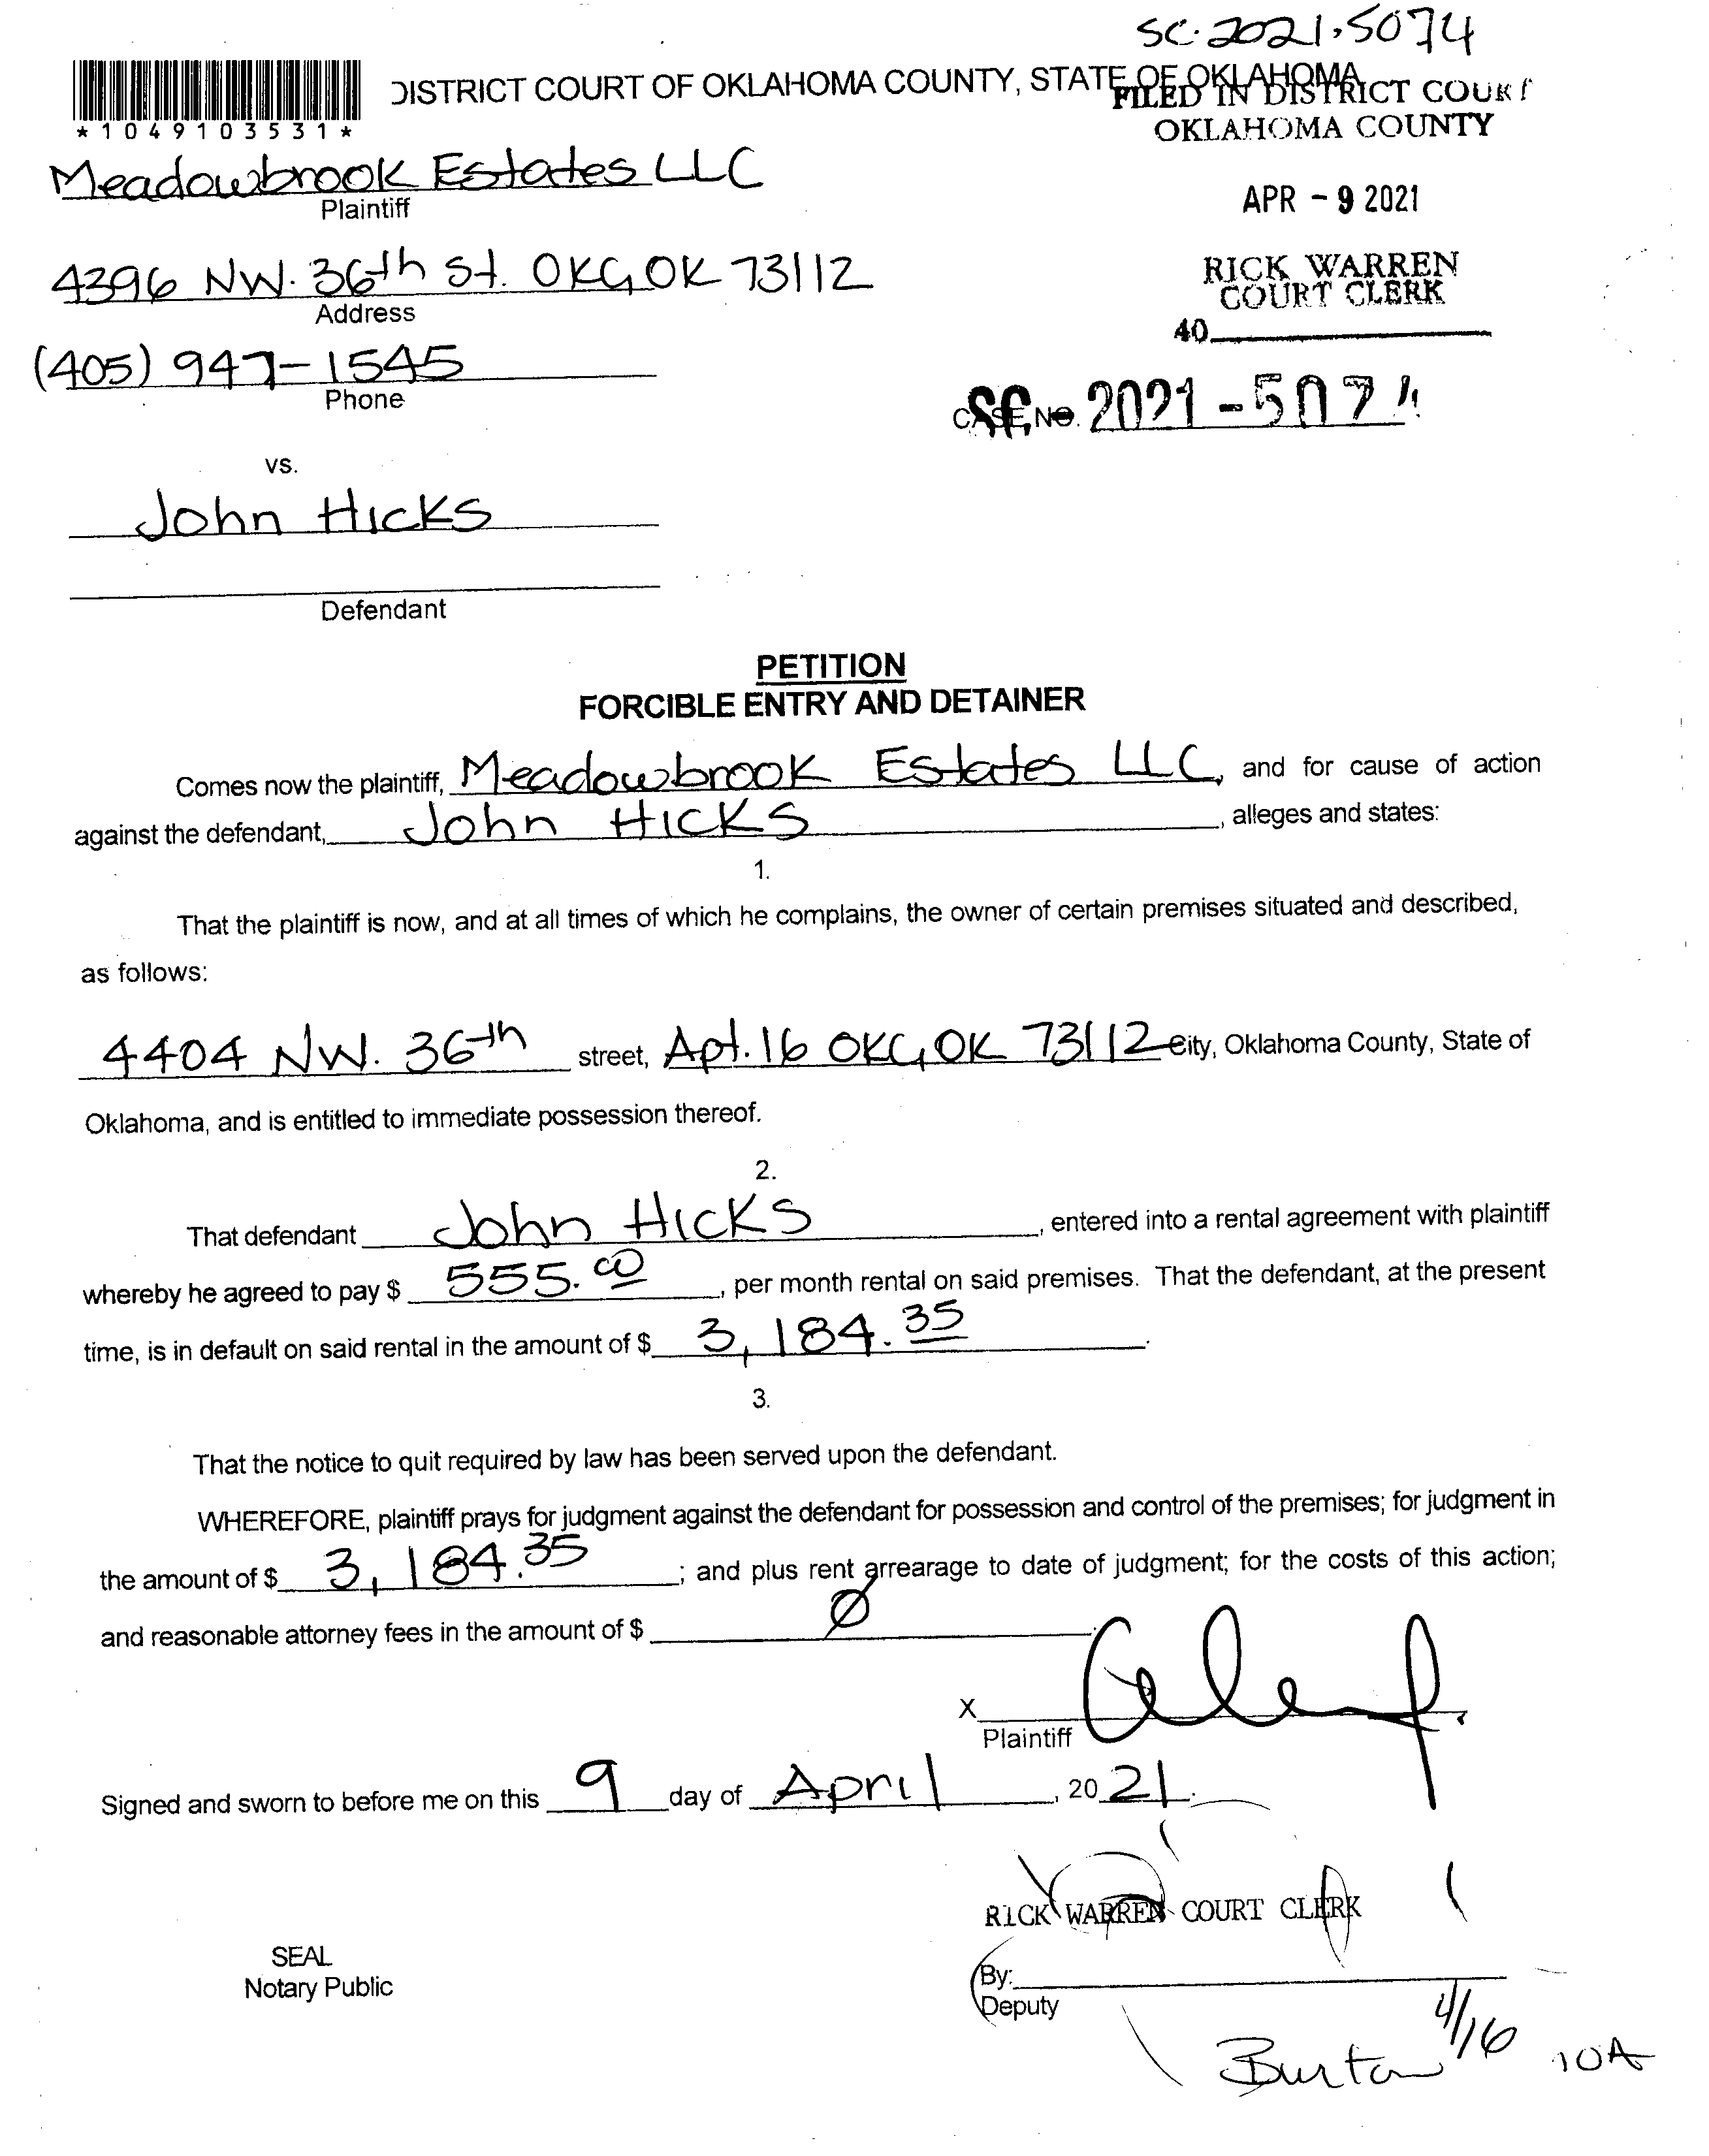 SC-2021-5074
DISTRICT COURT OF OKLAHOMA COUNTY, STATE OF OKLAHOMA
FILED IN DISTRICT COURT
OKLAHOMA COUNTY
*1049103531*
Meadowbrook Estates LLC
Plaintiff
APR - 9 2021
4396 NW. 36th St. OKC, OK 73112
Address
RICK WARREN
COURT CLERK
40
(405) 947-1545
Phone
CASE NO. SC 2021-5074
vs.
John Hicks
Defendant
PETITION
FORCIBLE ENTRY AND DETAINER
Comes now the plaintiff, Meadowbrook Estates LLC, and for cause of action
against the defendant, John Hicks, alleges and states:
1.
That the plaintiff is now, and at all times of which he complains, the owner of certain premises situated and described,
as follows:
4404 NW. 36th street, Apt. 16 OKC, OK 73112 City, Oklahoma County, State of
Oklahoma, and is entitled to immediate possession thereof.
2.
That defendant John Hicks, entered into a rental agreement with plaintiff
whereby he agreed to pay $ 555.00, per month rental on said premises. That the defendant, at the present
time, is in default on said rental in the amount of $ 3,184.35.
3.
That the notice to quit required by law has been served upon the defendant.
WHEREFORE, plaintiff prays for judgment against the defendant for possession and control of the premises; for judgment in
the amount of $ 3,184.35; and plus rent arrearage to date of judgment; for the costs of this action;
and reasonable attorney fees in the amount of $ Ø.
X
Plaintiff
Signed and sworn to before me on this 9 day of April, 2021.
RICK WARREN COURT CLERK
SEAL
Notary Public
By:
Deputy
4/16
Burton 10A